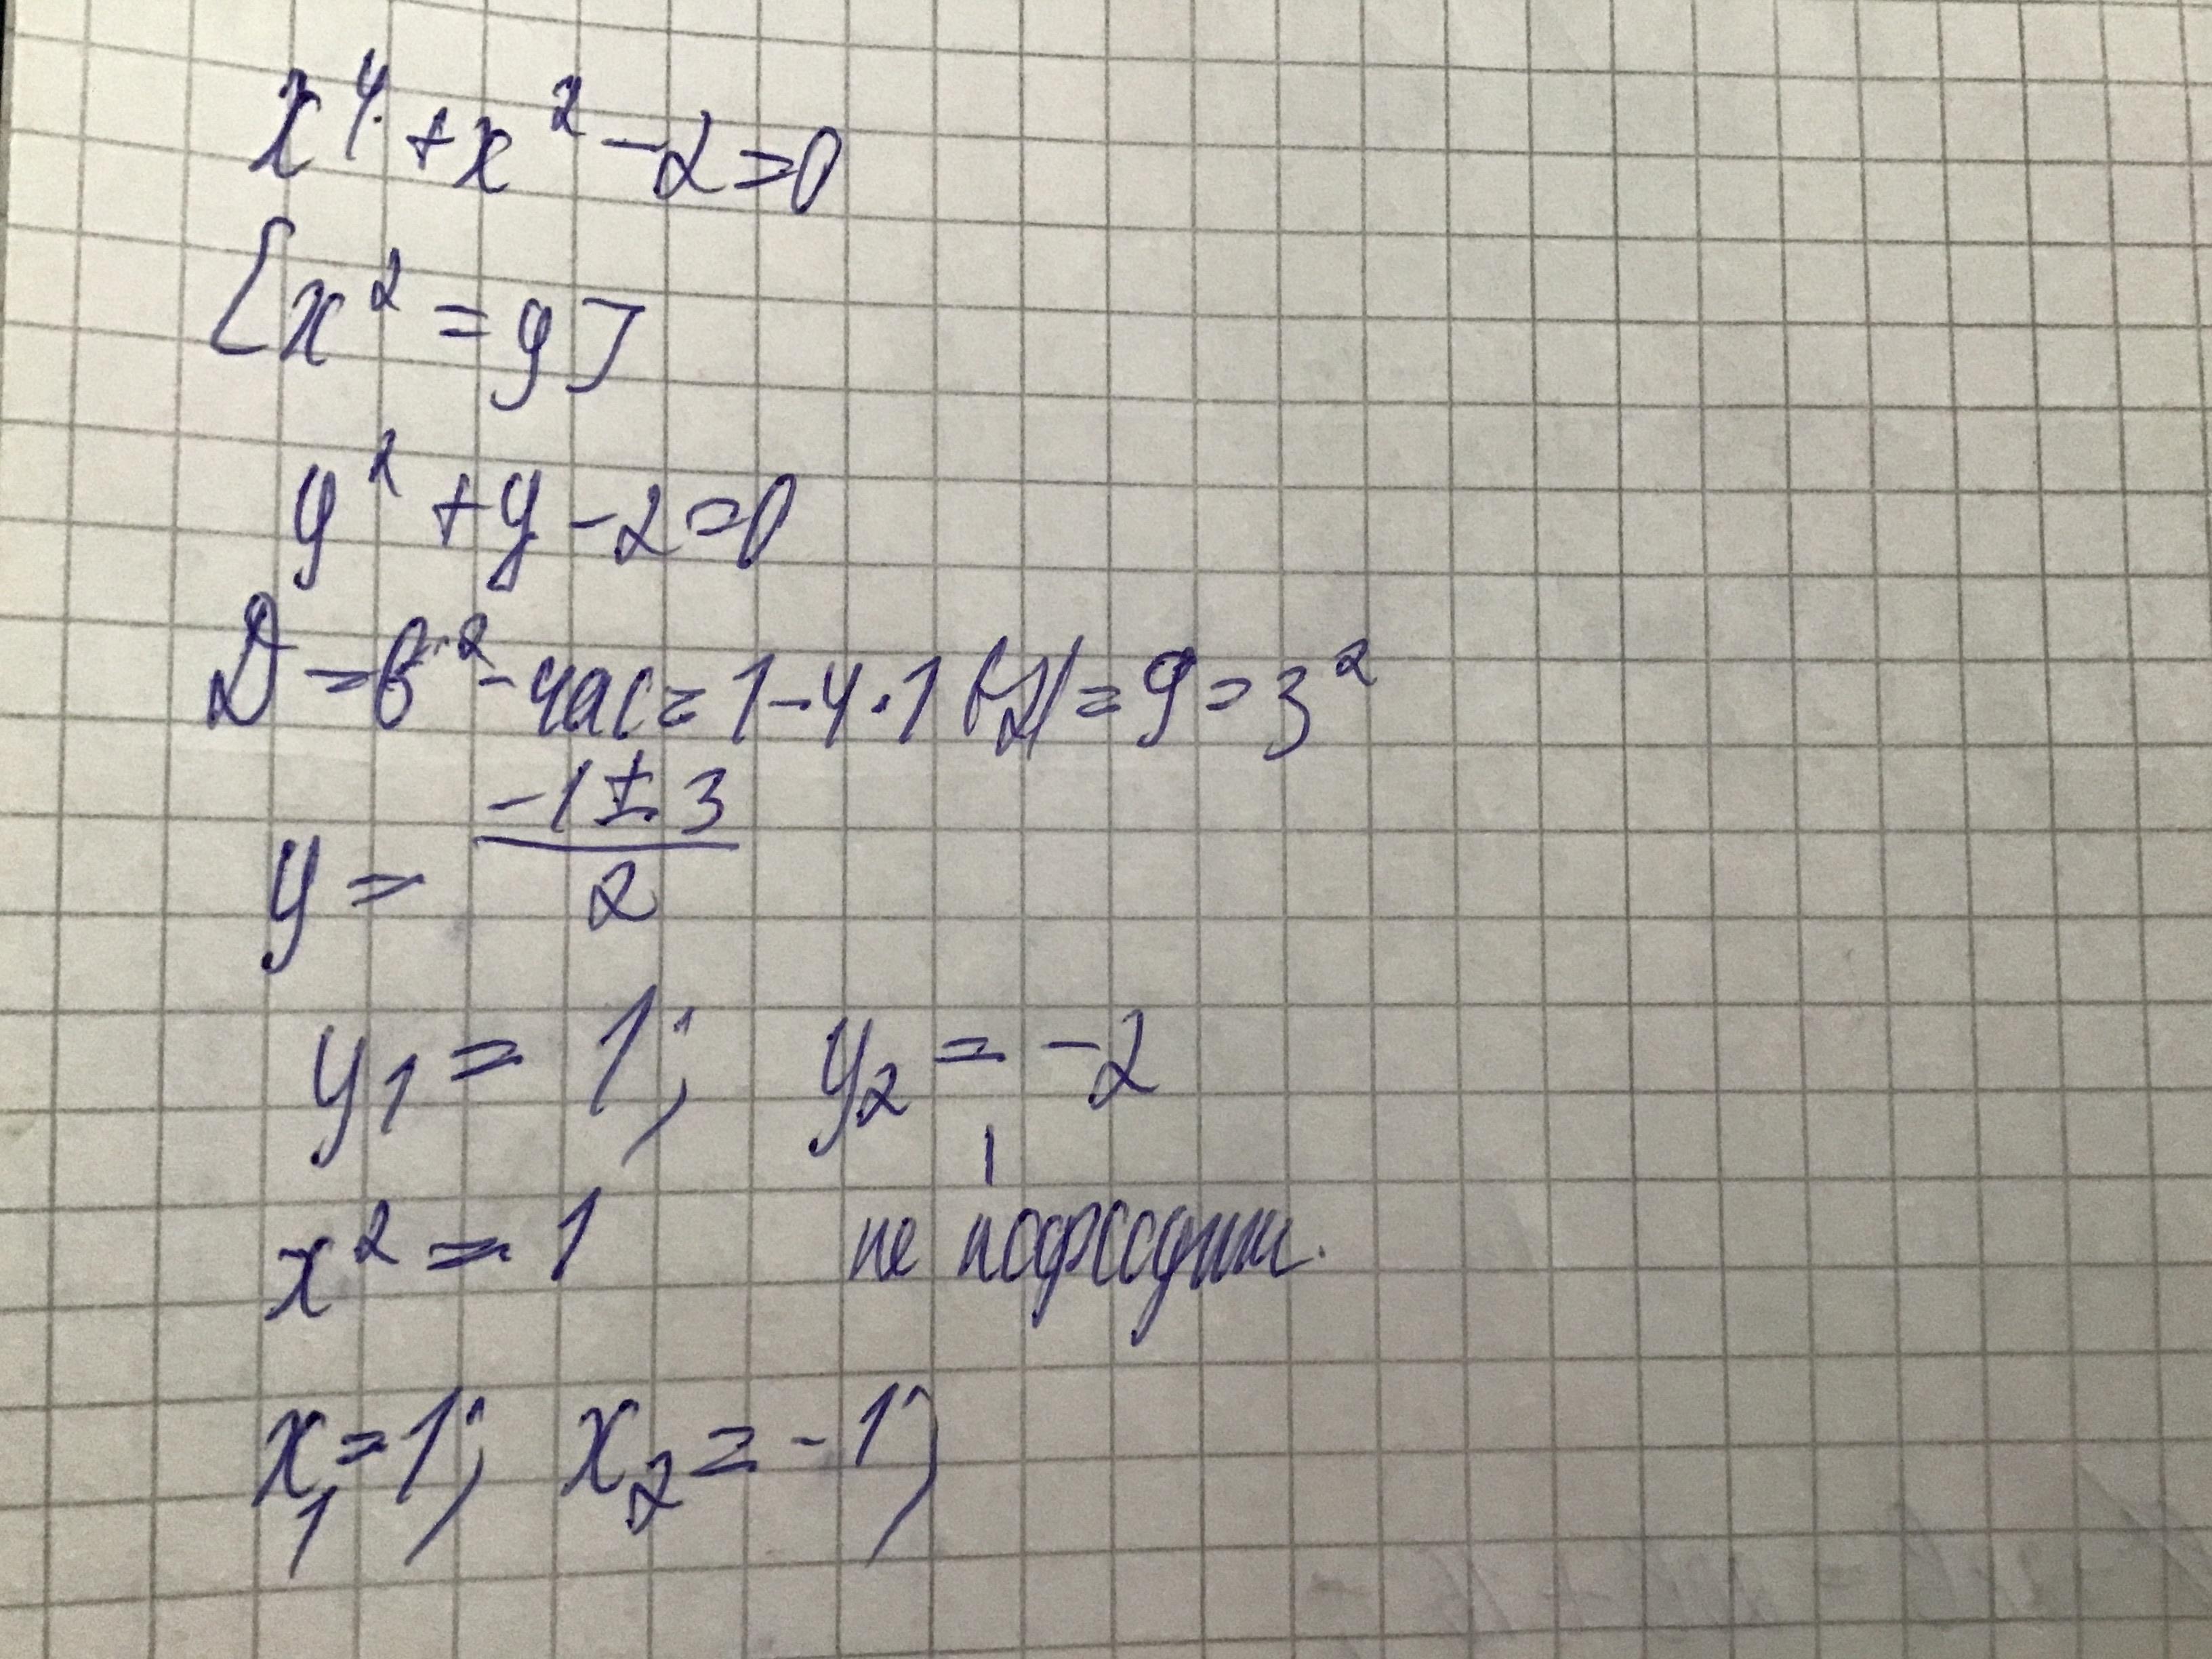 x⁴ + x² - 2 = 0
[x² = y]
y² + y - 2 = 0
D = b² - 4ac = 1 - 4·1(-2) = 9 = 3²
y = (-1 ± 3)/2
y₁ = 1; y₂ = -2
x² = 1 не подходит.
x₁ = 1; x₂ = -1;